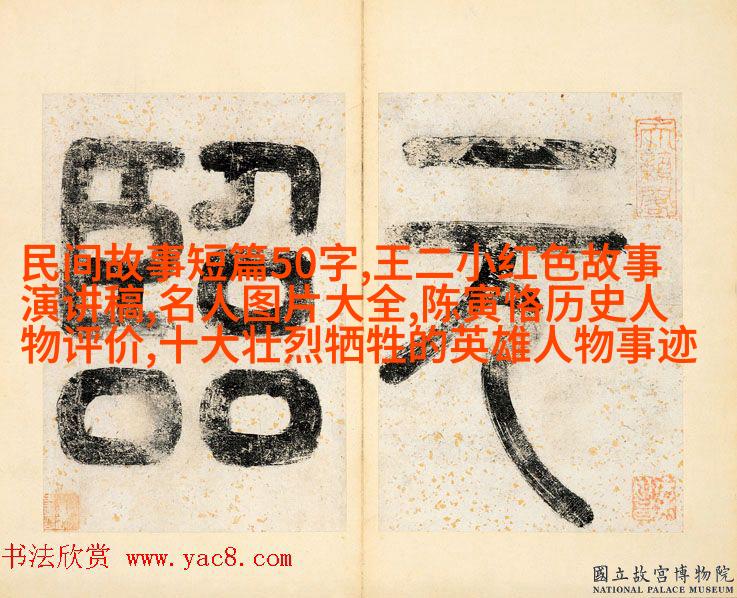 元
民间故事短篇50字,王二小红色故事
演讲稿,名人图片大全,陈寅恪历史人
物评价,十大壮烈牺牲的英雄人物事迹
书法欣赏 www.yac8.com
國立故宮博物院
NATIONAL PALACE MUSEUM